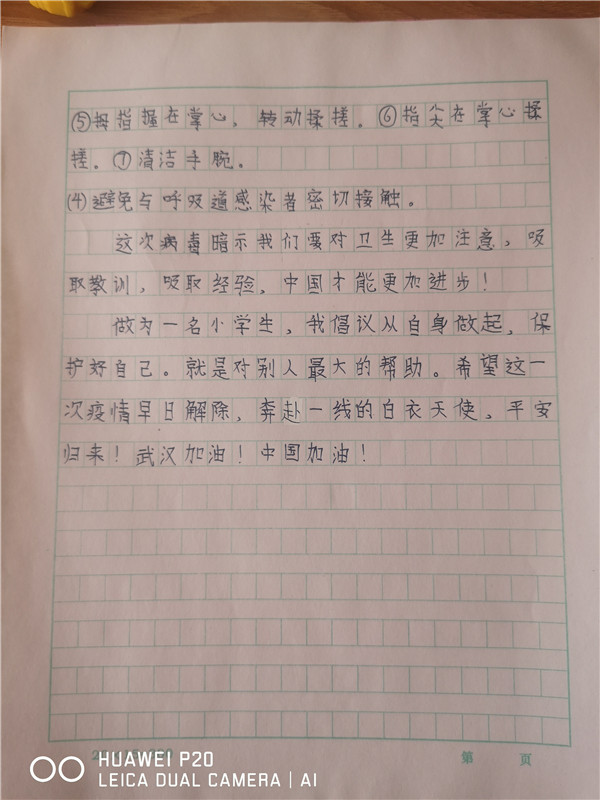 ⑤拇指握在掌心，转动揉搓。⑥指尖在掌心揉
搓。⑦清洁手腕。
(4)避免与呼吸道感染者密切接触。
这次病毒暗示我们要对卫生更加注意，吸
取教训，吸取经验，中国才能更加进步！
做为一名小学生，我倡议从自身做起，保
护好自己。就是对别人最大的帮助。希望这一
次疫情早日解除，奔赴一线的白衣天使，平安
归来！武汉加油！中国加油！
第 页
HUAWEI P20
LEICA DUAL CAMERA | AI